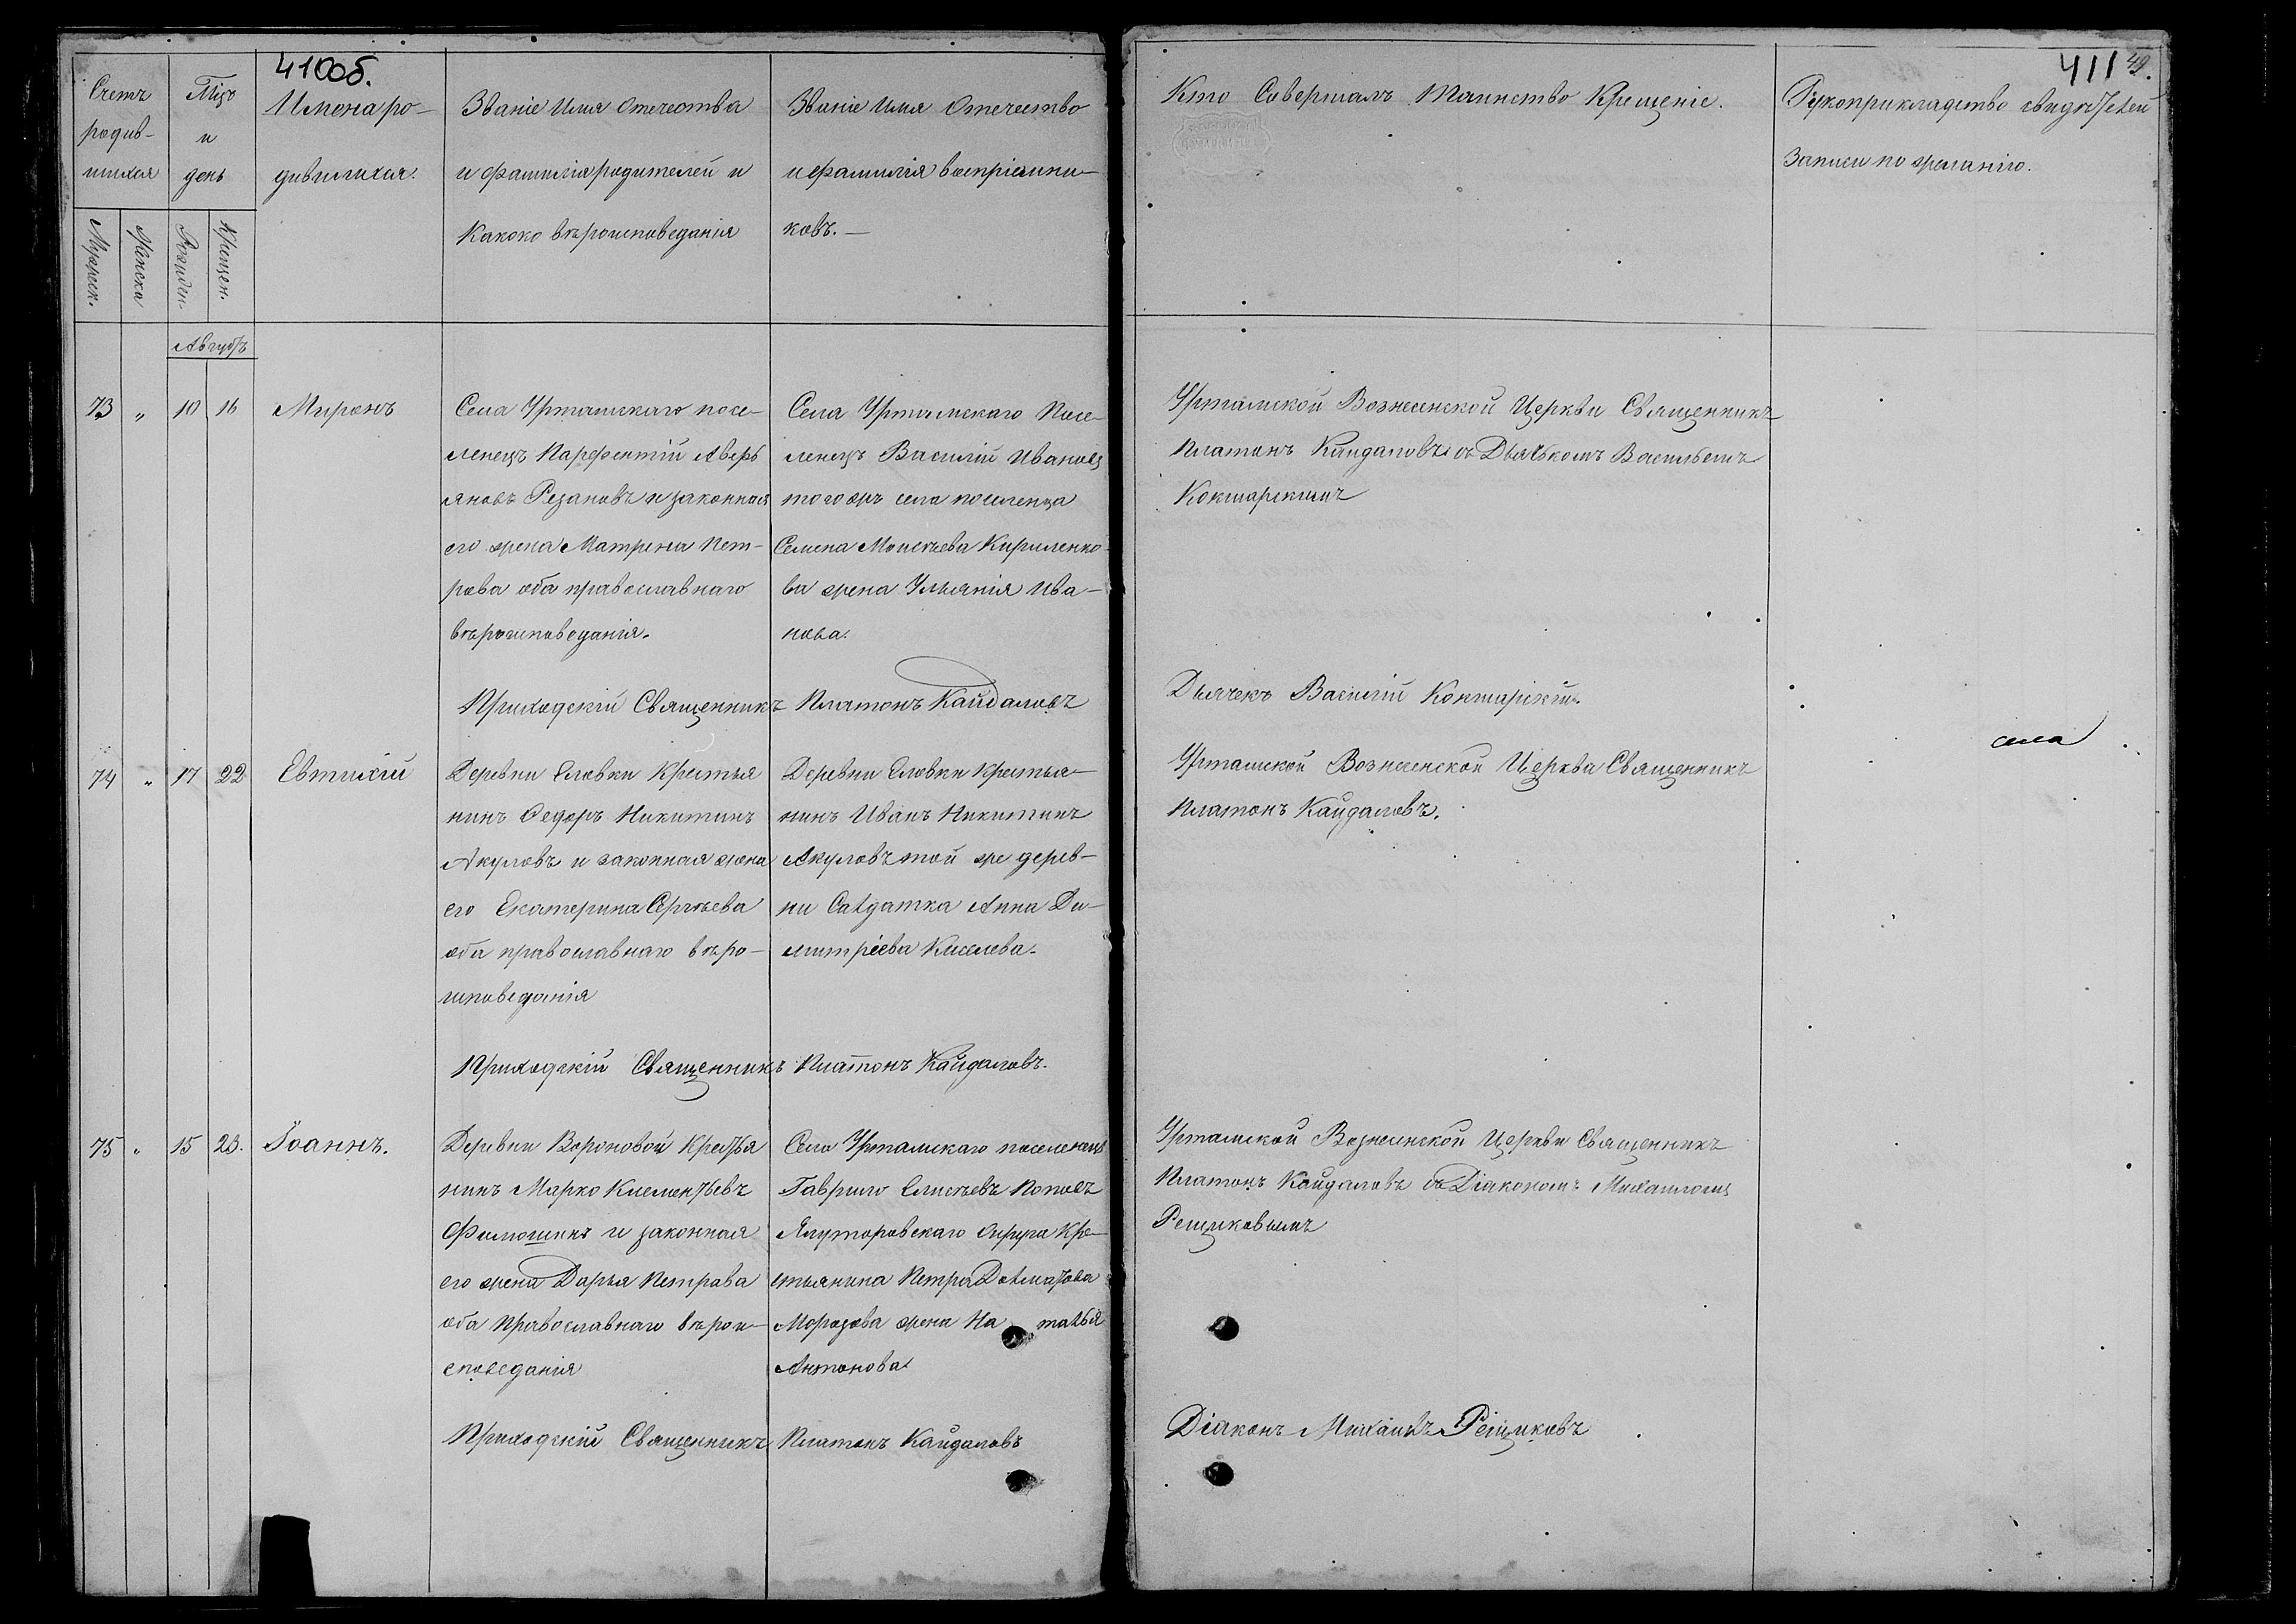 410об.
Счетъ
родив-
шихся
Мцъ
и
день
Имена ро-
дившихся.
Званіе Имя Отечества
и фамилія родителей и
Какоко вѣроисповеданія
Званіе Имя Отечество
и фамилія воспріемни-
ковъ.—
Мужеск.
Женска
Рожден.
Крещен.
Августъ
73 „ 10 16 Миронъ
Села Уртамскаго посе-
ленецъ Парфентій Аверь
яновъ Резановъ и законная
его жена Матрена Пет-
рова оба православнаго
вѣроисповеданія.
Села Уртамскаго Посе-
ленецъ Василій Ивановъ
того жъ села поселенца
Семена Моисѣева Кириленко-
ва жена Ульянія Ива-
нова.
Приходскій Священникъ Платонъ Кайдаловъ
74 „ 17 22 Евтихій
Деревни Еловки Крестья
нинъ Федоръ Никитинъ
Акуловъ и законная жена
его Екатерина Сергѣева
оба православнаго вѣро-
исповеданія
Деревни Еловки Крестья-
нинъ Иванъ Никитинъ
Акуловъ той же дерев-
ни Салдатка Анна Ди-
митріева Киселева.
Приходскій Священникъ Платонъ Кайдаловъ.
75 „ 15 23. Іоаннъ.
Деревни Вороновой Крестья
нинъ Марко Клементьевъ
Филюшинъ и законная
его жена Дарья Петрова
оба православнаго вѣрои-
споведанія
Села Уртамскаго поселенецъ
Гаврило Елисѣевъ Поповъ
Ялуторовскаго округа Кре-
стьянина Петра Долматова
Морозова жена На талья
Антонова.
Приходскій Священникъ Платонъ Кайдаловъ
411 49.
Кто Совершалъ Таинство Крещеніе.
Рукоприкладство свидѣтелей
Записи по желанію.
Уртамской Вознесенской Церкви Священникъ
Платонъ Кайдаловъ съ Дьячкомъ Васильемъ
Кокшарскимъ
Дьячекъ Василій Кокшарскій.
села
Уртамской Вознесенской Церкви Священникъ
Платонъ Кайдаловъ.
Уртамской Вознесенской Церкви Священникъ
Платонъ Кайдаловъ съ Діакономъ Михаиломъ
Рещиковымъ
Діаконъ Михаилъ Рещиковъ